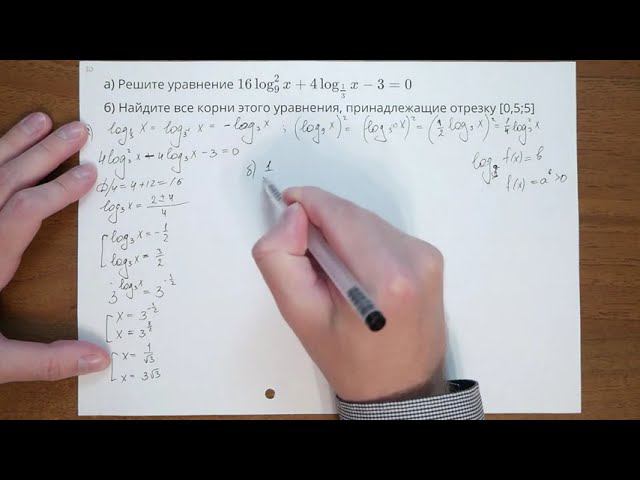 10
а) Решите уравнение 16 log₉² x + 4 log_{1/3} x − 3 = 0
б) Найдите все корни этого уравнения, принадлежащие отрезку [0,5;5]
log_{1/3} x = log_{3⁻¹} x = −log₃ x ; (log₉ x)² = (log_{3²} x)² = (1/2 log₃ x)² = 1/4 log₃² x
4 log₃² x − 4 log₃ x − 3 = 0
D/4 = 4 + 12 = 16
log₃ x = (2 ± 4)/4
[ log₃ x = −1/2
log₃ x = 3/2
3^{log₃ x} = 3^{−1/2}
[ x = 3^{−1/2}
x = 3^{3/2}
[ x = 1/√3
x = 3√3
б) 1
f(x) = b
f(x) = a^b > 0